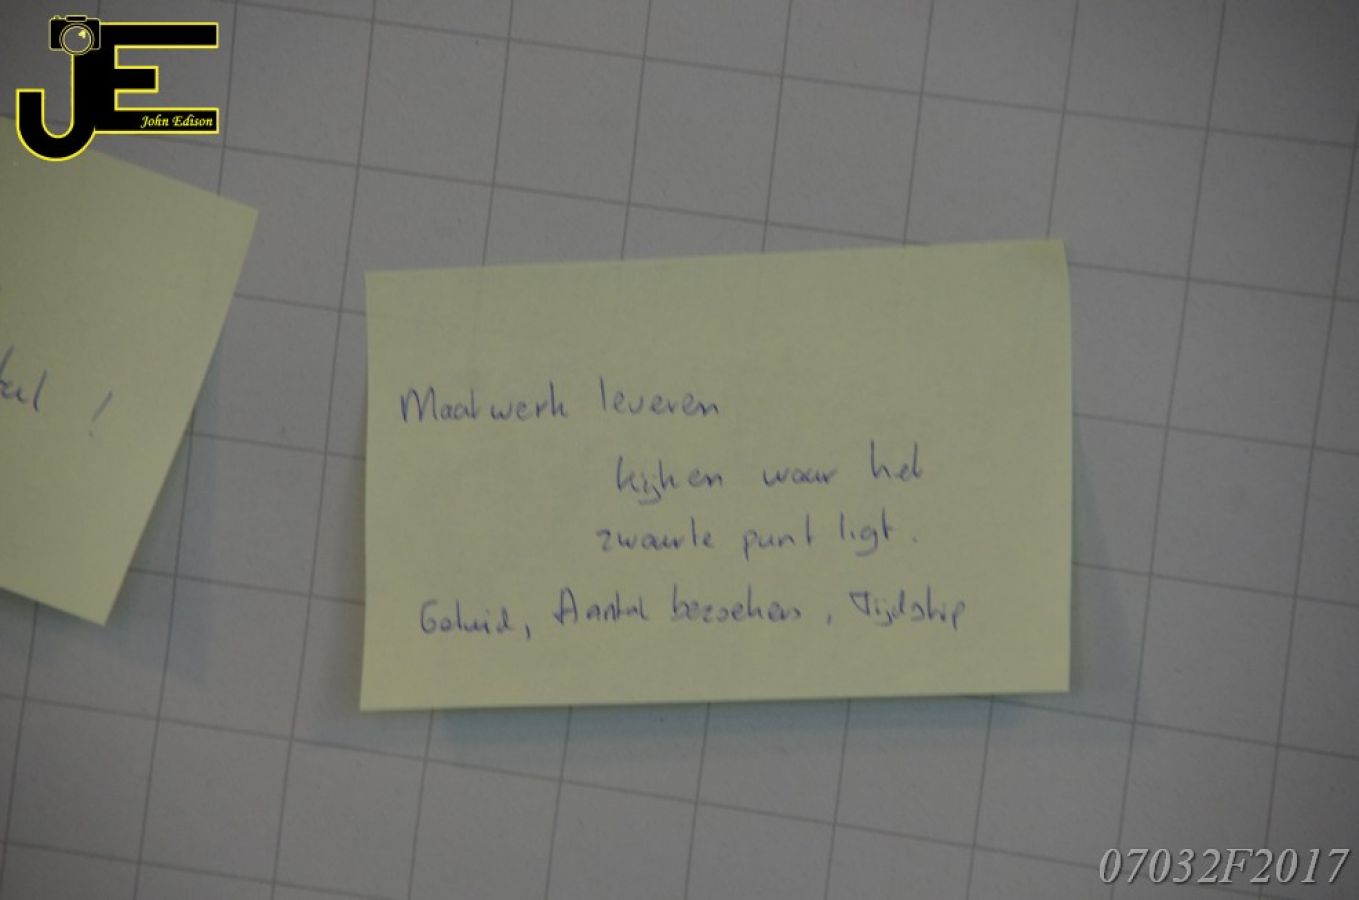 JE
John Edison
!
Maatwerk leveren
kijken waar het
zwaarte punt ligt.
Geluid, Aantal bezoekers, Tijdstip
07032F2017